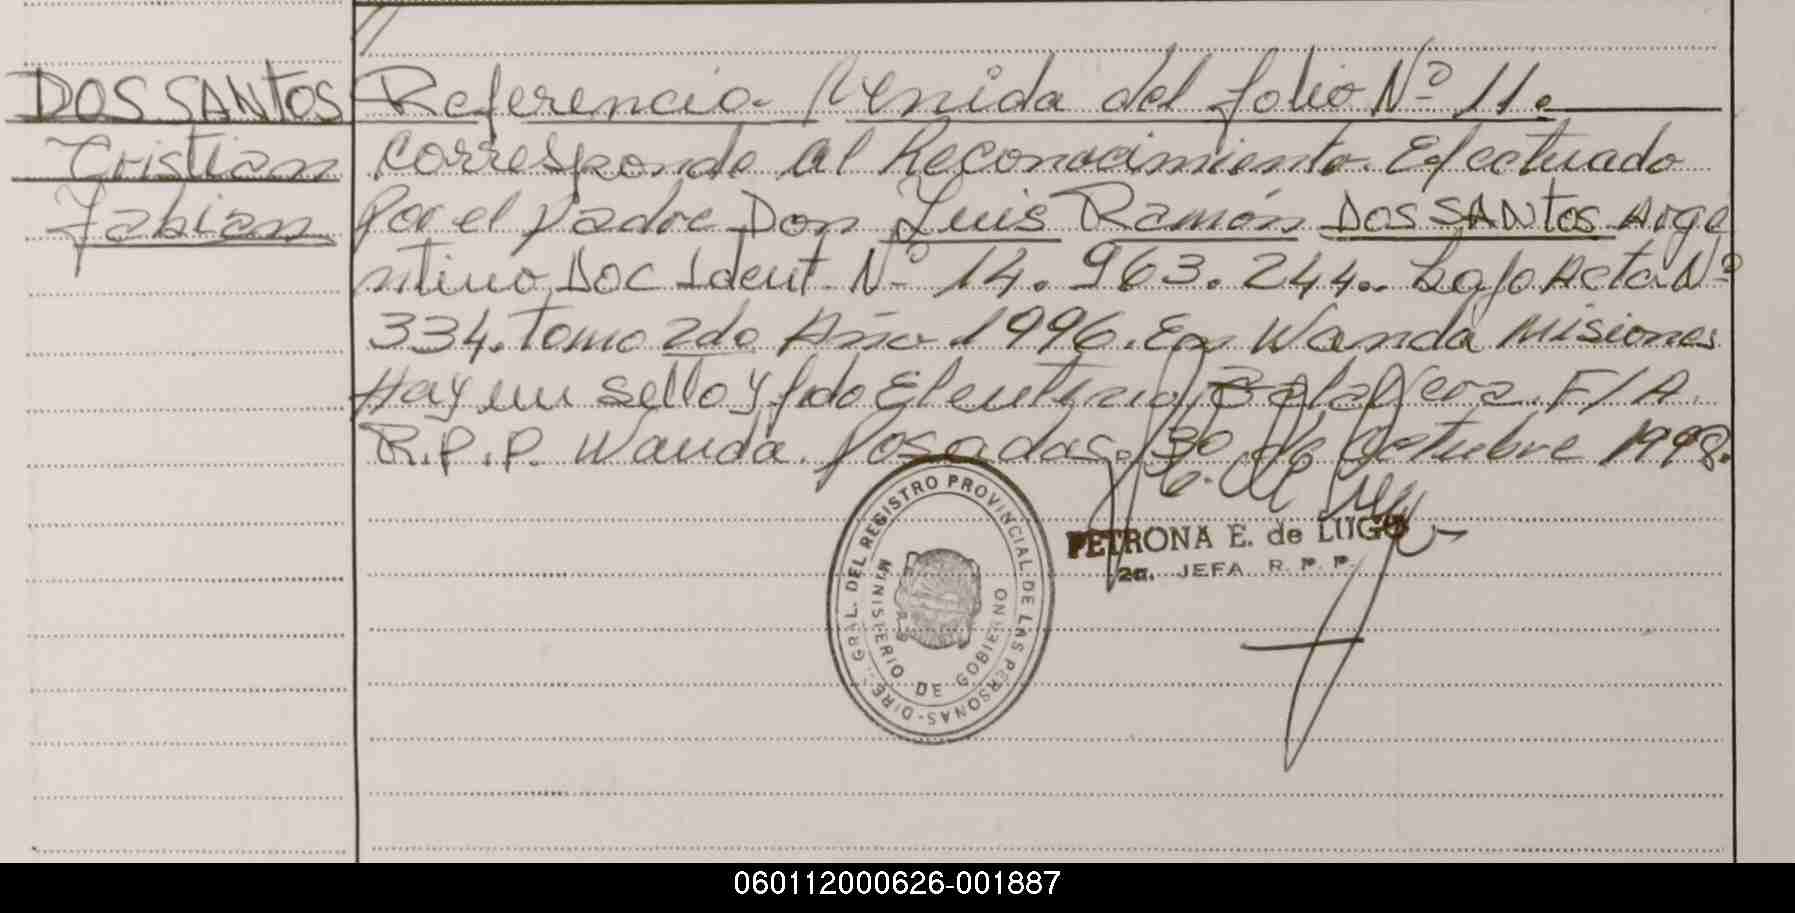 DOS SANTOS
Cristian
Fabian
Referencia Venida del folio Nº 11.
Corresponde al Reconocimiento Efectuado
Por el padre Don Luis Ramón DOS SANTOS Arge
ntino Doc Ident. Nº 14.963.244.. bajo Acta Nº
334. Tomo 2do Año 1996. En Wanda Misiones
Hay un sello y fdo Eleuterio F/A.
R.P.P. Wanda. Posadas, 30 de Octubre 1998.
DIRE. GRAL. DEL REGISTRO PROVINCIAL DE LAS PERSONAS-
MINISTERIO DE GOBIERNO
PETRONA E. de LUGO
2a. JEFA R. P. P.
060112000626-001887